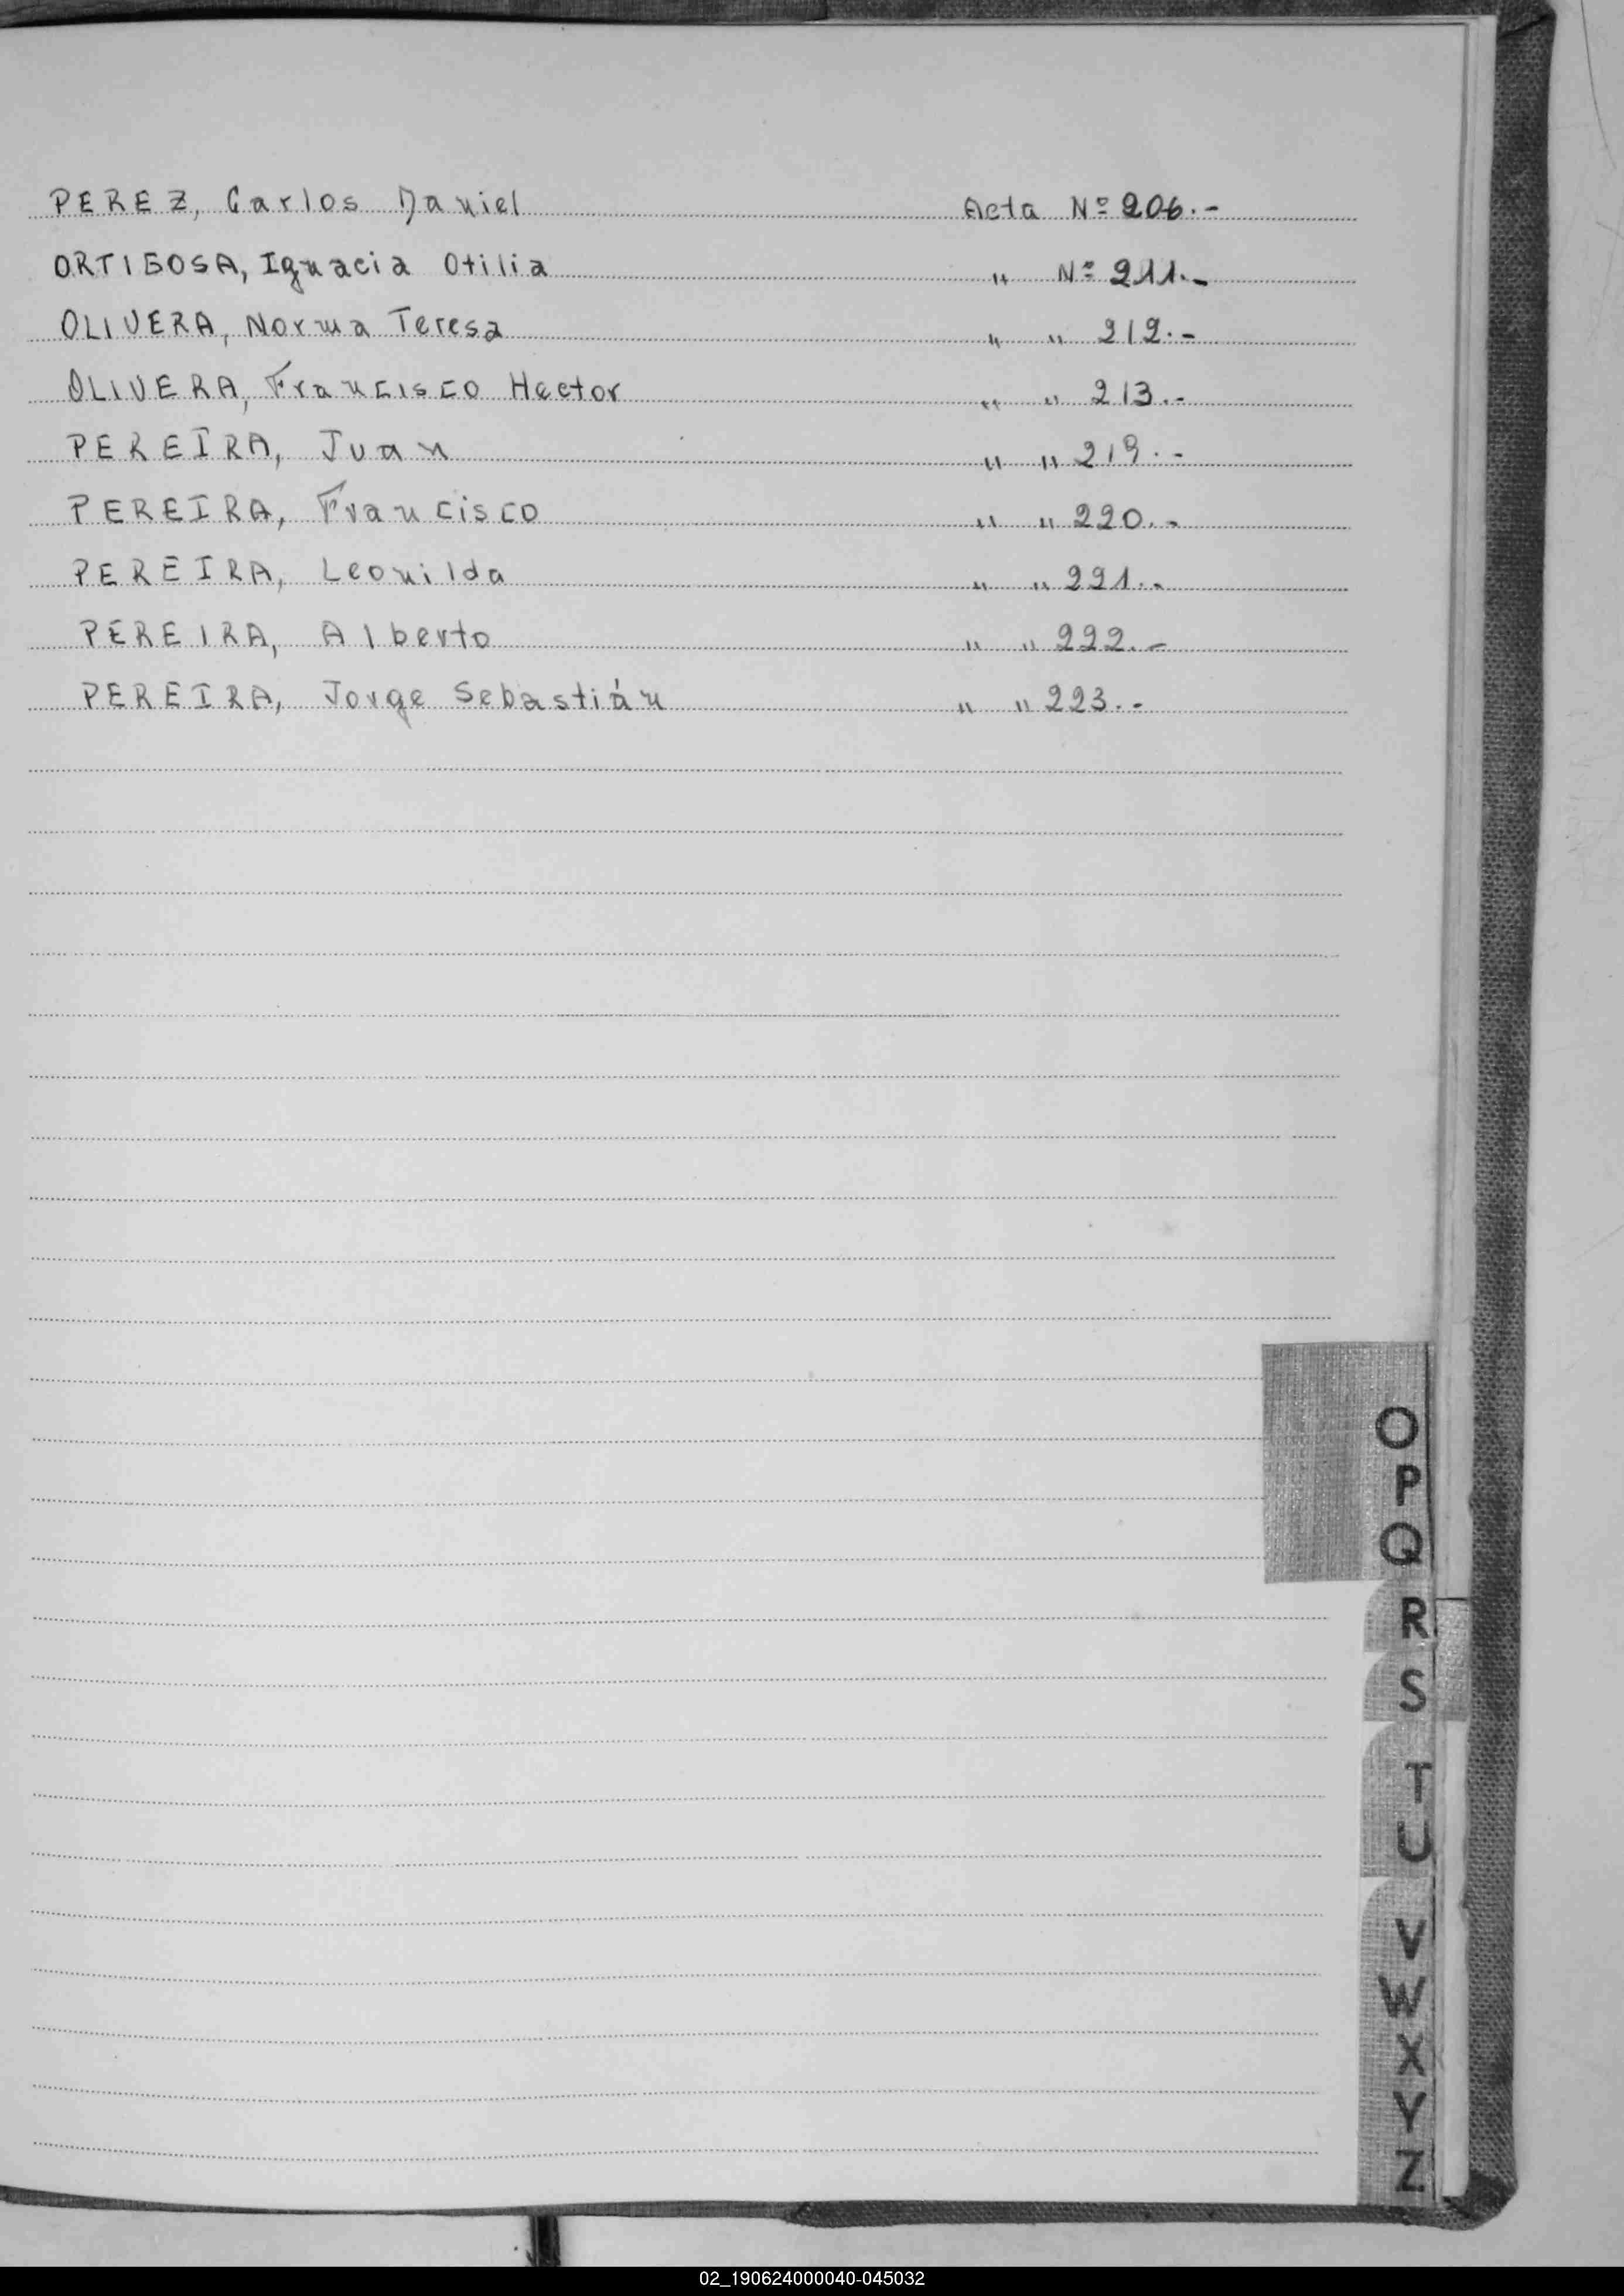 PEREZ, Carlos Daniel Acta Nº 206.-
ORTIGOSA, Ignacia Otilia " Nº 211.-
OLIVERA, Norma Teresa " " 212.-
OLIVERA, Francisco Hector " " 213.-
PEREIRA, Juan " " 219.-
PEREIRA, Francisco " " 220.-
PEREIRA, Leonilda " " 221.-
PEREIRA, Alberto " " 222.-
PEREIRA, Jorge Sebastián " " 223.-
O
P
Q
R
S
T
U
V
W
X
Y
Z
02_190624000040-045032